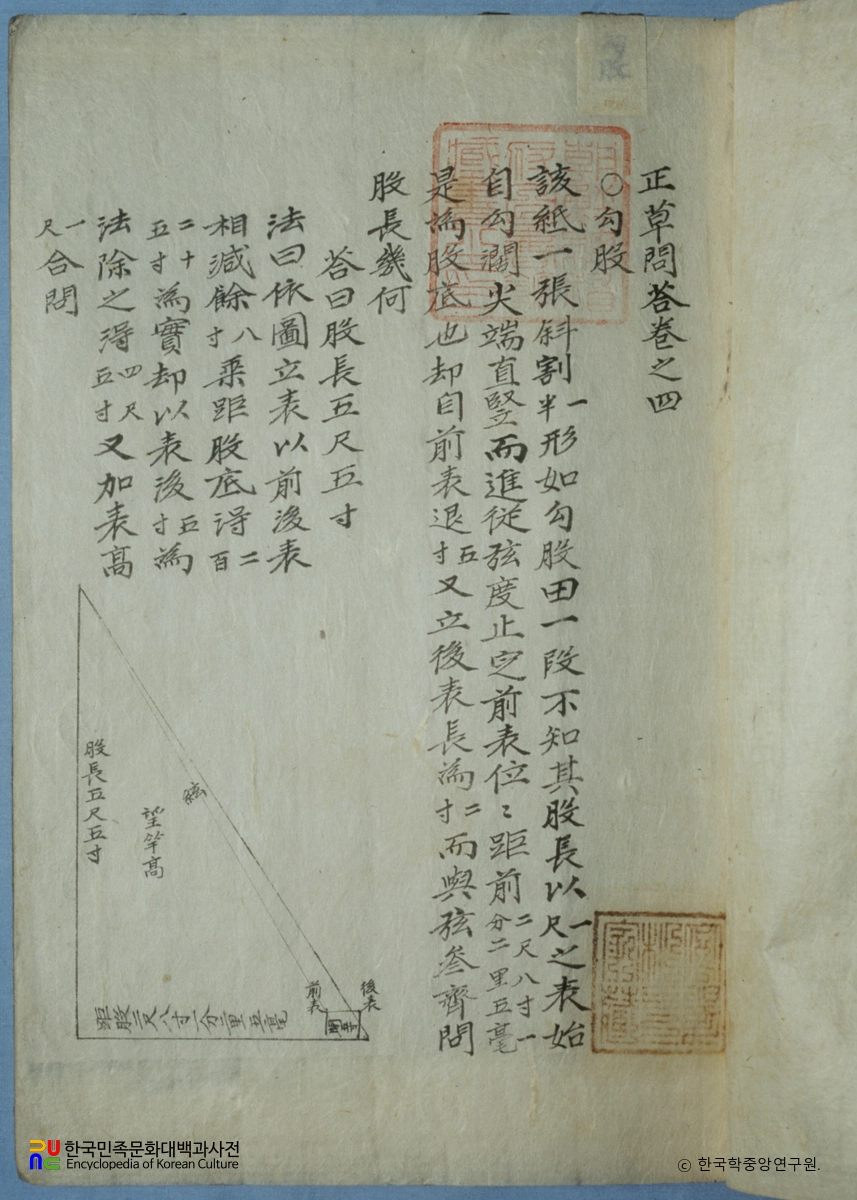 正草問答卷之四
○勾股
該紙一張斜割一半形如勾股田一段不知其股長以一尺之表始
自勾濶尖端直竪而進從弦度止定前表位〻距前二尺八寸一分二里五毫
是為股底也却自前表退五寸又立後表長為二寸而與弦叅齊問
股長幾何
答曰股長五尺五寸
法曰依圖立表以前後表
相減餘八寸乘距股底得二百
二十五寸為實却以表後五寸為
法除之得四尺五寸又加表高
一尺合問
股長五尺五寸
望竿高
弦
前表
後表
距股二尺八寸一分二里五毫
한국민족문화대백과사전
Encyclopedia of Korean Culture
© 한국학중앙연구원.